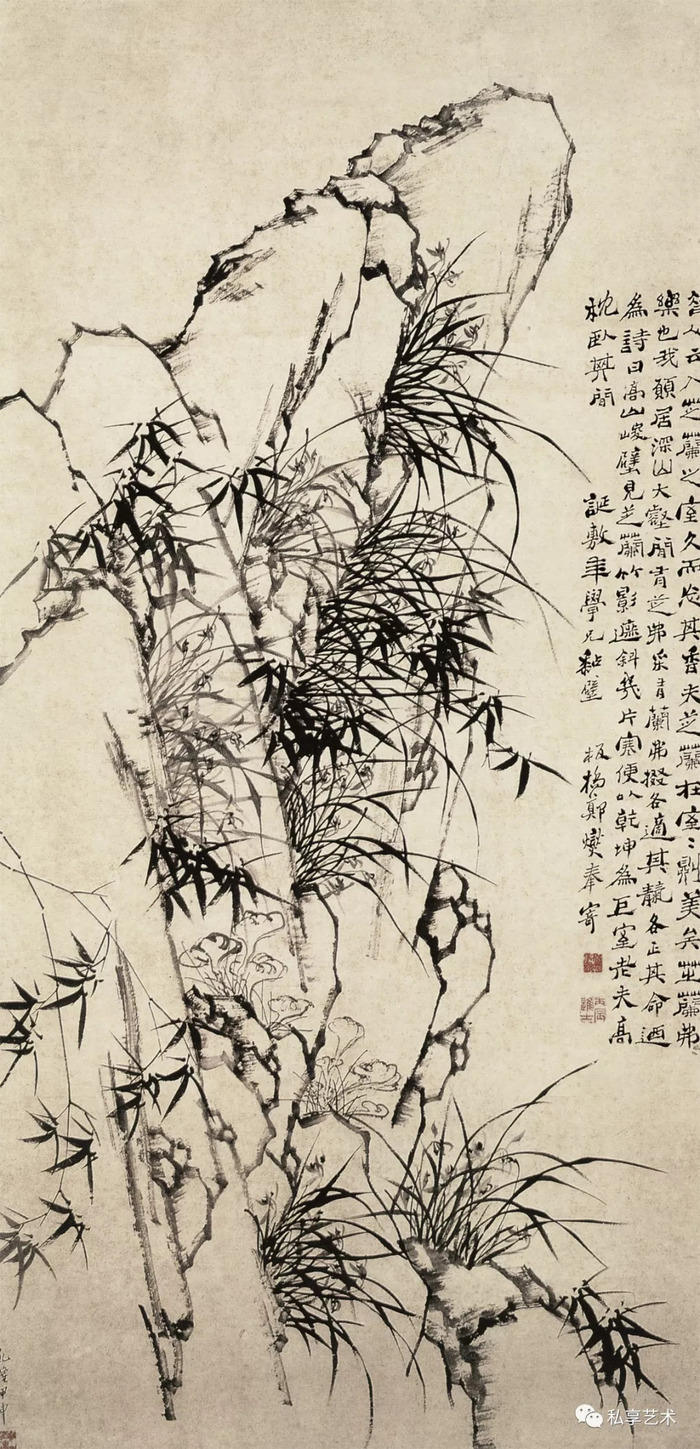 昔人云入芝蘭之室久而忘其香夫芝蘭在室〻則美矣芝蘭弗
樂也我願居深山大壑間有芝弗采有蘭弗掇各適其靜各正其命迺
為詩曰高山峻壁見芝蘭竹影遮斜幾片寒便以乾坤為巨室老夫高
枕臥其間 誕敷年學兄黏壁 板橋鄭燮奉寄
私享艺术